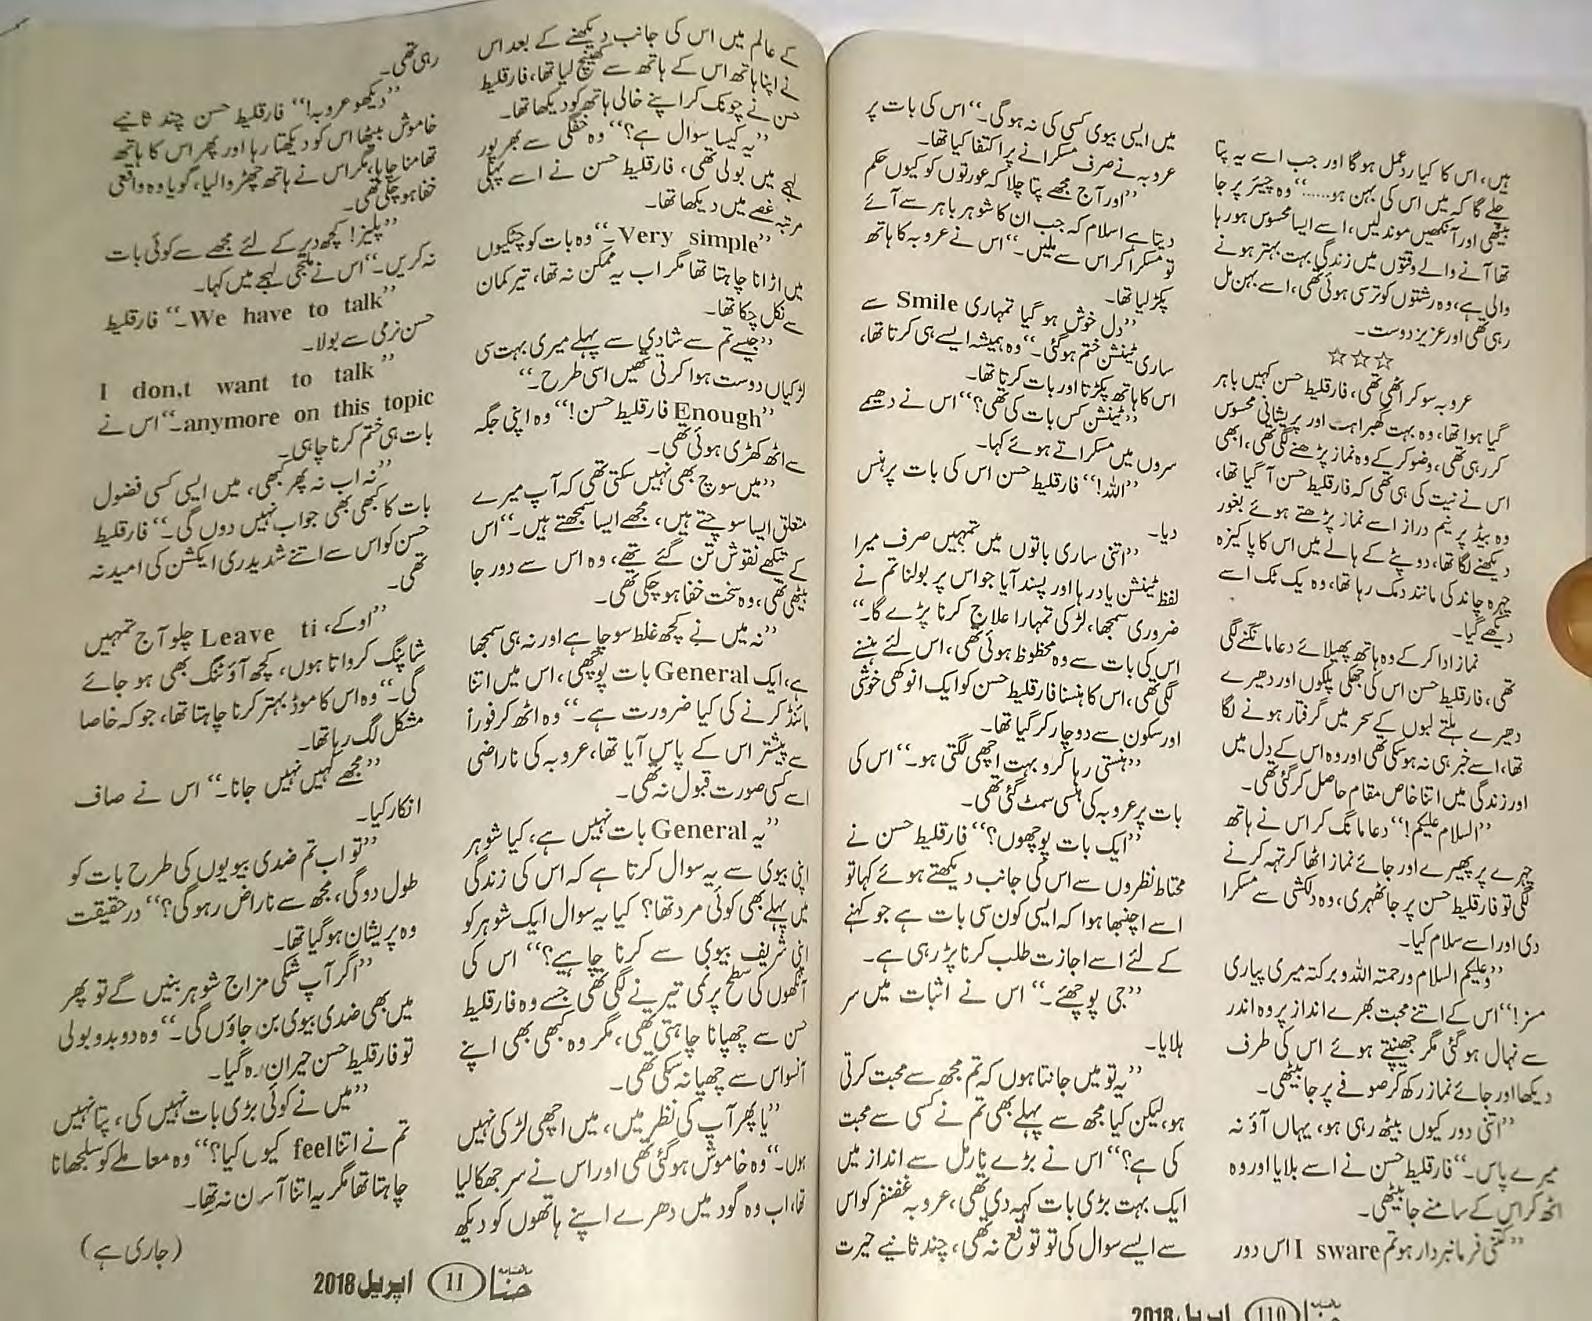 ہیں، اس کا کیا ردعمل ہوگا اور جب اسے یہ پتا
چلے گا کہ میں اس کی بہن ہو......‘‘ وہ چیئر پر جا
بیٹھی اور آنکھیں موند لیں، اسے ایسا محسوس ہو رہا
تھا آنے والے وقتوں میں زندگی بہت بہتر ہونے
والی ہے، وہ رشتوں کو ترسی ہوئی تھی، اسے بہن مل
رہی تھی اور عزیز دوست۔
☆☆☆
عروبہ سو کر اٹھی تھی، فارقلیط حسن کہیں باہر
گیا ہوا تھا، وہ بہت گھبراہٹ اور پریشانی محسوس
کر رہی تھی، وضو کر کے وہ نماز پڑھنے لگی تھی، ابھی
اس نے نیت کی ہی تھی کہ فارقلیط حسن آ گیا تھا،
وہ بیڈ پر نیم دراز اسے نماز پڑھتے ہوئے بغور
دیکھنے لگا تھا، دوپٹے کے ہالے میں اس کا پاکیزہ
چہرہ چاند کی مانند دمک رہا تھا، وہ یک ٹک اسے
دیکھے گیا۔
نماز ادا کر کے وہ ہاتھ پھیلائے دعا مانگنے لگی
تھی، فارقلیط حسن اس کی جھکی پلکوں اور دھیرے
دھیرے ہلتے لبوں کے سحر میں گرفتار ہونے لگا
تھا، اسے خبر ہی نہ ہو سکی تھی اور وہ اس کے دل میں
اور زندگی میں اتنا خاص مقام حاصل کر گئی تھی۔
’’السلام علیکم!‘‘ دعا مانگ کر اس نے ہاتھ
چہرے پر پھیرے اور جائے نماز اٹھا کر تہہ کرنے
لگی تو فارقلیط حسن پر جا ٹھہری، وہ دلکشی سے مسکرا
دی اور اسے سلام کیا۔
’’وعلیکم السلام ورحمتہ اللہ وبرکتہ میری پیاری
مسز!‘‘ اس کے اتنے محبت بھرے انداز پر وہ اندر
سے نہال ہو گئی مگر جھینپتے ہوئے اس کی طرف
دیکھا اور جائے نماز رکھ کر صوفے پر جا بیٹھی۔
’’اتنی دور کیوں بیٹھ رہی ہو، یہاں آؤ نہ
میرے پاس۔‘‘ فارقلیط حسن نے اسے بلایا اور وہ
اٹھ کر اس کے سامنے جا بیٹھی۔
’’کتنی فرمانبردار ہو تم I sware اس دور
میں ایسی بیوی کسی کی نہ ہو گی۔‘‘ اس کی بات پر
عروبہ نے صرف مسکرانے پر اکتفا کیا تھا۔
’’اور آج مجھے پتا چلا کہ عورتوں کو کیوں حکم
دیتا ہے اسلام کہ جب ان کا شوہر باہر سے آئے
تو مسکرا کر اس سے ملیں۔‘‘ اس نے عروبہ کا ہاتھ
پکڑ لیا تھا۔
’’دل خوش ہو گیا تمہاری Smile سے
ساری ٹینشن ختم ہو گئی۔‘‘ وہ ہمیشہ ایسے ہی کرتا تھا،
اس کا ہاتھ پکڑتا اور بات کرتا تھا۔
’’ٹینشن کس بات کی تھی؟‘‘ اس نے دھیمے
سروں میں مسکراتے ہوئے کہا۔
’’اللہ!‘‘ فارقلیط حسن اس کی بات پر ہنس
دیا۔
’’اتنی ساری باتوں میں تمہیں صرف میرا
لفظ ٹینشن یاد رہا اور پسند آیا جو اس پر بولنا تم نے
ضروری سمجھا، لڑکی تمہارا علاج کرنا پڑے گا۔‘‘
اس کی بات سے وہ محظوظ ہوئی تھی، اس لئے ہنسنے
لگی تھی، اس کا ہنسنا فارقلیط حسن کو ایک انوکھی خوشی
اور سکون سے دوچار کر گیا تھا۔
’’ہنستی رہا کرو بہت اچھی لگتی ہو۔‘‘ اس کی
بات پر عروبہ کی ہنسی سمٹ گئی تھی۔
’’ایک بات پوچھوں؟‘‘ فارقلیط حسن نے
محتاط نظروں سے اس کی جانب دیکھتے ہوئے کہا تو
اسے اچنبھا ہوا کہ ایسی کون سی بات ہے جو کہنے
کے لئے اسے اجازت طلب کرنا پڑ رہی ہے۔
’’جی پوچھئے۔‘‘ اس نے اثبات میں سر
ہلایا۔
’’یہ تو میں جانتا ہوں کہ تم مجھ سے محبت کرتی
ہو، لیکن کیا مجھ سے پہلے بھی تم نے کسی سے محبت
کی ہے؟‘‘ اس نے بڑے نارمل سے انداز میں
ایک بہت بڑی بات کہہ دی تھی، عروبہ غضنفر کو اس
سے ایسے سوال کی تو توقع نہ تھی، چند ثانیے حیرت
110 اپریل 2018
کے عالم میں اس کی جانب دیکھنے کے بعد اس
نے اپنا ہاتھ اس کے ہاتھ سے کھینچ لیا تھا، فارقلیط
حسن نے چونک کر اپنے خالی ہاتھ کو دیکھا تھا۔
’’یہ کیسا سوال ہے؟‘‘ وہ خفگی سے بھرپور
لہجے میں بولی تھی، فارقلیط حسن نے اسے پہلی
مرتبہ غصے میں دیکھا تھا۔
’’Very simple۔‘‘ وہ بات کو چٹکیوں
میں اڑانا چاہتا تھا مگر اب یہ ممکن نہ تھا، تیر کمان
سے نکل چکا تھا۔
’’جیسے تم سے شادی سے پہلے میری بہت سی
لڑکیاں دوست ہوا کرتی تھیں اسی طرح۔‘‘
’’Enough فارقلیط حسن!‘‘ وہ اپنی جگہ
سے اٹھ کھڑی ہوئی تھی۔
’’میں سوچ بھی نہیں سکتی تھی کہ آپ میرے
متعلق ایسا سوچتے ہیں، مجھے ایسا سمجھتے ہیں۔‘‘ اس
کے تیکھے نقوش تن گئے تھے، وہ اس سے دور جا
بیٹھی تھی، وہ سخت خفا ہو چکی تھی۔
’’نہ میں نے کچھ غلط سوچا ہے اور نہ ہی سمجھا
ہے، ایک General بات پوچھی، اس میں اتنا
مائنڈ کرنے کی کیا ضرورت ہے۔‘‘ وہ اٹھ کر فوراً
سے پیشتر اس کے پاس آیا تھا، عروبہ کی ناراضی
اسے کسی صورت قبول نہ تھی۔
’’یہ General بات نہیں ہے، کیا شوہر
اپنی بیوی سے یہ سوال کرتا ہے کہ اس کی زندگی
میں پہلے بھی کوئی مرد تھا؟ کیا یہ سوال ایک شوہر کو
اپنی شریف بیوی سے کرنا چاہیے؟‘‘ اس کی
آنکھوں کی سطح پر نمی تیرنے لگی تھی جسے وہ فارقلیط
حسن سے چھپانا چاہتی تھی، مگر وہ کبھی بھی اپنے
آنسو اس سے چھپا نہ سکی تھی۔
’’یا پھر آپ کی نظر میں، میں اچھی لڑکی نہیں
ہوں۔‘‘ وہ خاموش ہو گئی تھی اور اس نے سر جھکا لیا
تھا، اب وہ گود میں دھرے اپنے ہاتھوں کو دیکھ
رہی تھی۔
’’دیکھو عروبہ!‘‘ فارقلیط حسن چند ثانیے
خاموش بیٹھا اس کو دیکھتا رہا اور پھر اس کا ہاتھ
تھامنا چاہا، مگر اس نے ہاتھ چھڑوا لیا، گویا وہ واقعی
خفا ہو چکی تھی۔
’’پلیز! کچھ دیر کے لئے مجھے سے کوئی بات
نہ کریں۔‘‘ اس نے ملتجی لہجے میں کہا۔
’’We have to talk۔‘‘ فارقلیط
حسن نرمی سے بولا۔
’’I don,t want to talk
anymore on this topic۔‘‘ اس نے
بات ہی ختم کرنا چاہی۔
’’نہ اب نہ پھر کبھی، میں ایسی کسی فضول
بات کا کبھی بھی جواب نہیں دوں گی۔‘‘ فارقلیط
حسن کو اس سے اتنے شدید ری ایکشن کی امید نہ
تھی۔
’’اوکے، Leave ti چلو آج تمہیں
شاپنگ کرواتا ہوں، کچھ آؤٹنگ بھی ہو جائے
گی۔‘‘ وہ اس کا موڈ بہتر کرنا چاہتا تھا، جو کہ خاصا
مشکل لگ رہا تھا۔
’’مجھے کہیں نہیں جانا۔‘‘ اس نے صاف
انکار کیا۔
’’تو اب تم ضدی بیویوں کی طرح بات کو
طول دو گی، مجھ سے ناراض رہو گی؟‘‘ درحقیقت
وہ پریشان ہو گیا تھا۔
’’اگر آپ شکی مزاج شوہر بنیں گے تو پھر
میں بھی ضدی بیوی بن جاؤں گی۔‘‘ وہ دوبدو بولی
تو فارقلیط حسن حیران رہ گیا۔
’’میں نے کوئی بڑی بات نہیں کی، پتا نہیں
تم نے اتنا feel کیوں کیا؟‘‘ وہ معاملے کو سلجھانا
چاہتا تھا مگر یہ اتنا آسان نہ تھا۔
(جاری ہے)
ماہنامہ حنا 11 اپریل 2018